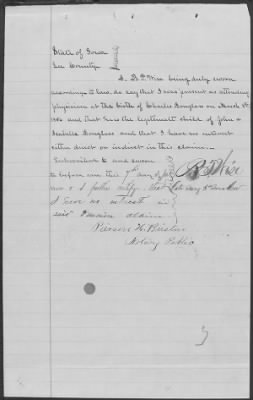 State of Iowa
Lee County
I, B.P. Wise being duly sworn
according to law, do say that I was present as attending
physician at the birth of Charles Douglass on March
and that he is the legitimate child of John &
Isabella Douglass and that I have no interest
either direct or indirect in this claim.
Subscribed to and sworn
to before me this 7th day of
and I further certify that
I have no interest in
said Pension claim.
Pierson H.
Notary Public